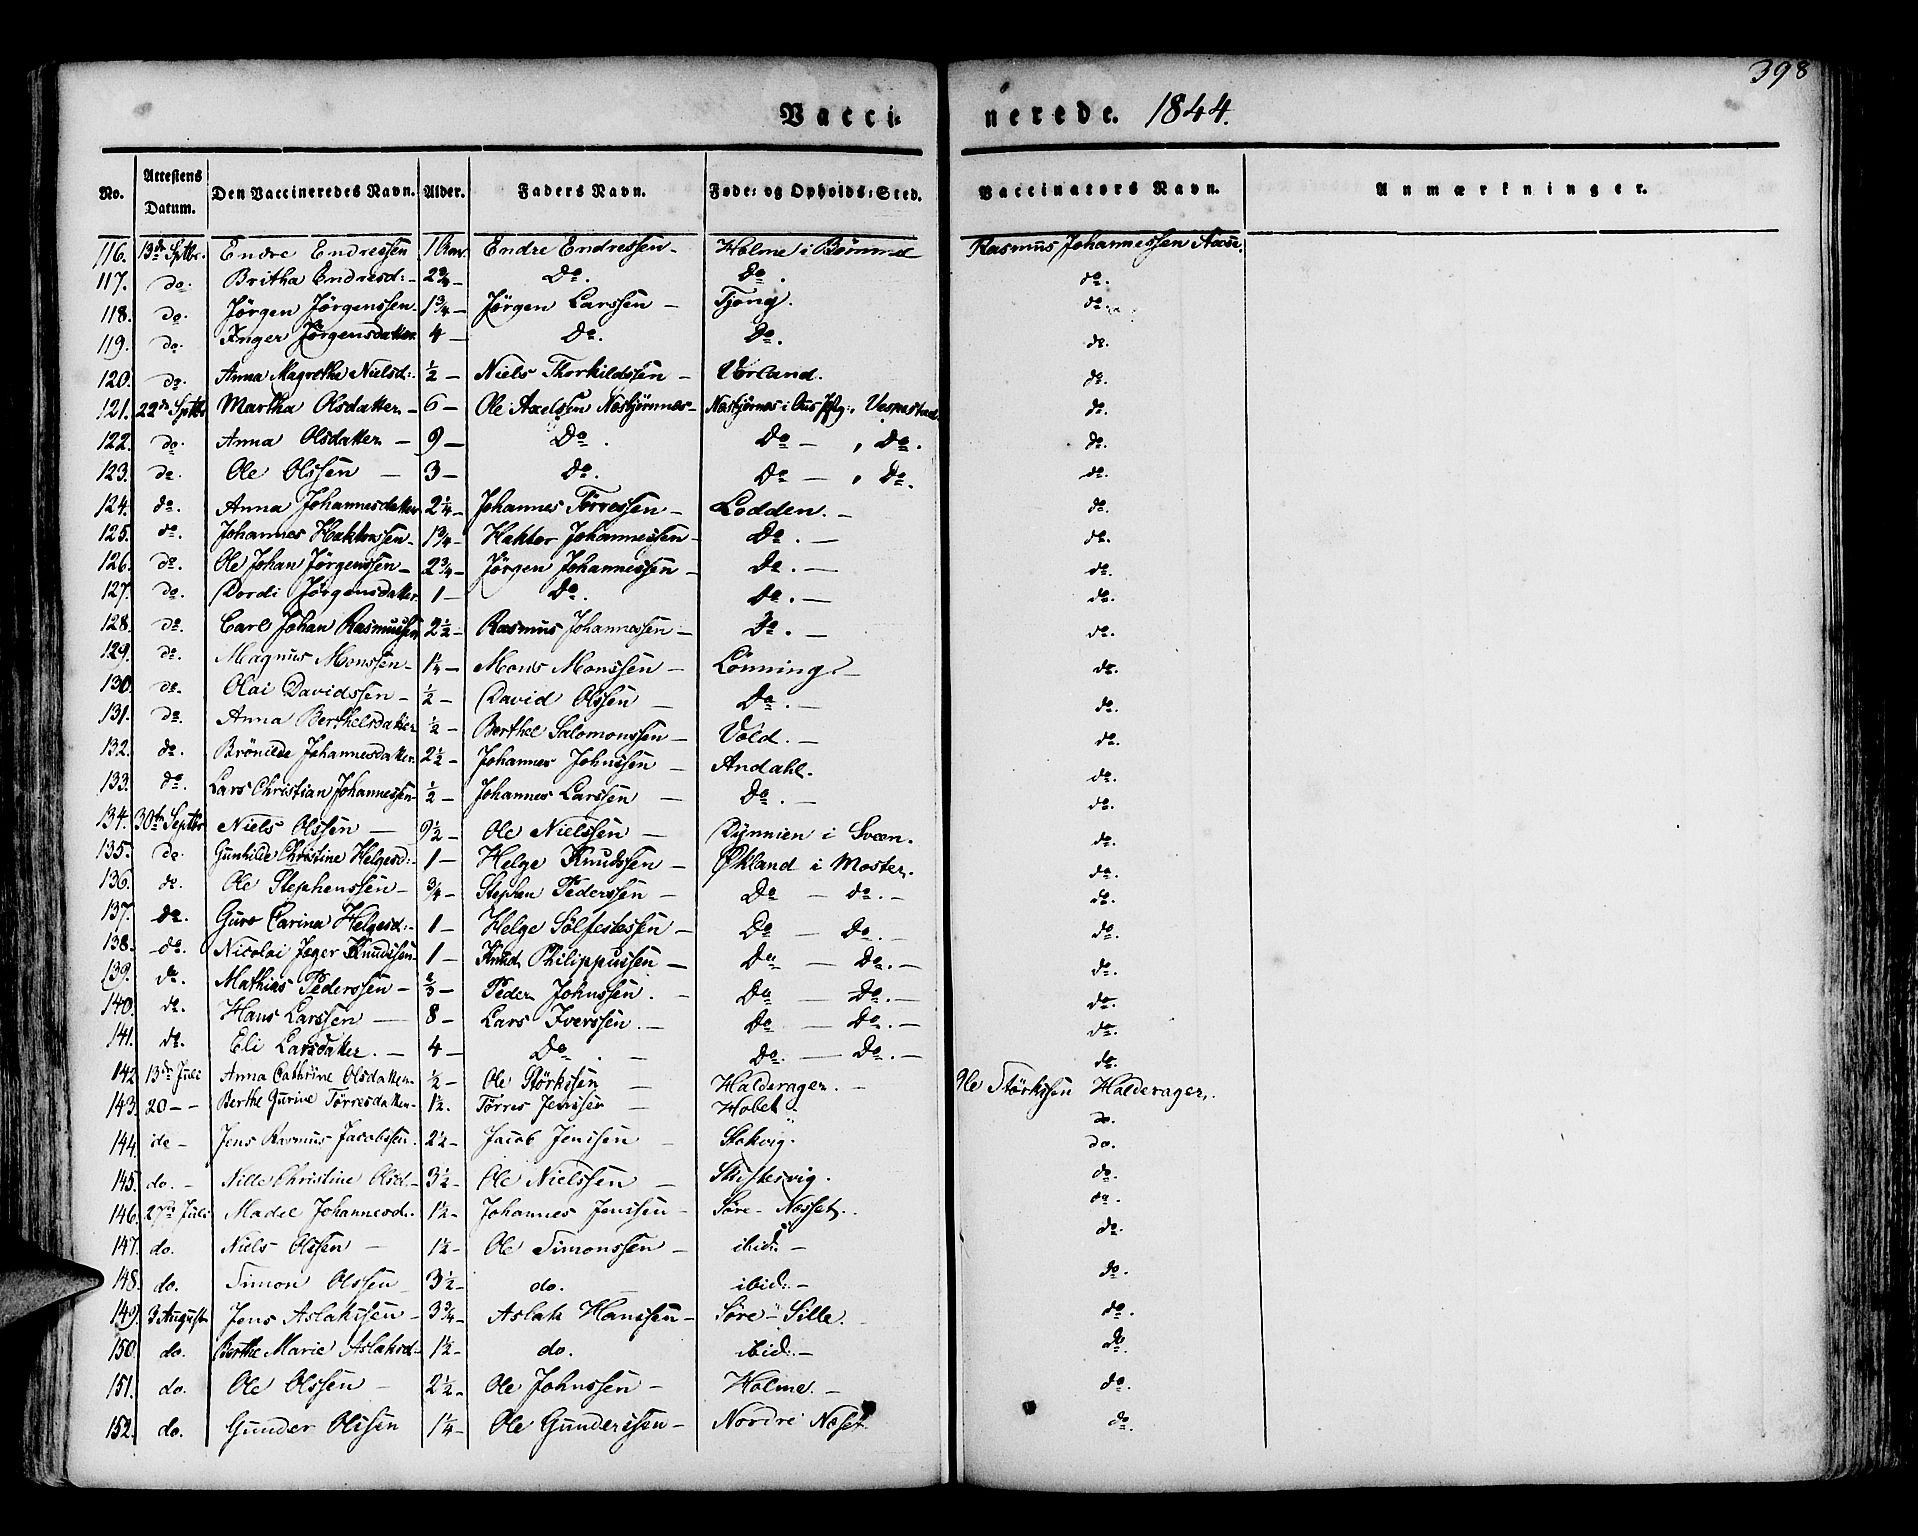 398
Vacci- nerede. 1844.
No. Attestens Datum. Den Vaccineredes Navn. Alder. Faders Navn. Føde- og Opholds-Sted. Vaccinators Navn. Anmærkninger.
116. 13de Sptbr. Endre Endressen 1 Endre Endressen - Holme i Rasmus Johannessen
117. do. Britha Endresd:- 2¾- Do. Do. do.
118. do. Jørgen Jørgenssen- 1¾- Jørgen Larssen - Tjong. do.
119. do. Inger Jørgensdatter 4 - Do. Do. do.
120. do. Anna Magretha Nielsd:- ½ - Niels Thorkildssen - Vorland. do.
121. 22de Sptbr Martha Olsdatter - 6 - Ole Axelssen Næstjørnnæs - Næstjørnæs i , Vespestad do.
122. do. Anna Olsdatter - 9 - Do. Do - , Do. do.
123. do. Ole Olssen - 3 - Do. Do - , Do. do.
124. do. Anna Johannesdatter 2¼- Johannes Tørressen - Lodden. - do.
125. do. Johannes Haktorssen - 1¾- Haktor Johannessen - Do. - do.
126. do. Ole Johan Jørgenssen - 2¾- Jørgen Johannessen - Do. - do.
127. do. Dordi Jørgensdatter 1 - Do. Do. - do.
128. do. Carl Johan Rasmussen 2½- Rasmus Johannessen - Do. - do.
129. do. Magnus Monssen - 1¼- Mons Monssen - Lønning - do.
130. do. Olai Davidssen - ½ - David Olssen - Do. - do.
131. do. Anna Berthelsdatter ½ - Berthel Salomonssen - Vold. - do.
132. do. Brønilde Johannesdatter 2½- Johannes Johnssen - Andahl. do.
133. do. Lars Christian Johannessen - ½ - Johannes Larssen - Do. - do.
134. 30te Septbr Niels Olssen - 9½- Ole Nielssen - Rÿnnien i Svæn. do.
135. do Gunhilde Christine Helgesd:- 1 - Helge Knudssen - Økland i Moster. do.
136. do. Ole Stephenssen - ¾- Stephen Pederssen - Do - do. - do.
137. do. Guro Carina Helgesd:- 1 - Helge Sølfestessen - Do - Do. - do.
138. do. Nicolai Jæger Knudssen - 1 - Knud Philippussen - Do - Do. - do.
139. do. Mathias Pederssen - ⅔ - Peder Johnssen. - Do - Do. - do.
140. do. Hans Larssen - 8 - Lars Iverssen. - Do - Do. - do.
141. do. Eli Larsdatter. - 4 - Do. - Do. - Do. - do.
142 13de Juli Anna Cathrine Olsdatter - ½- Ole Størkssen - Halderager. - Ole Størkssen Halderager.
143. 20 - - Berthe Gurine Tørresdatter - 1½. Tørres Jenssen - Habet - do.
144. do - Jens Rasmus Jacobssen. 2½- Jacob Jenssen - Stokvig. do.
145. do. - Nille Christine Olsd - 3½- Ole Nielssen - do.
146. 27de Juli Madel Johannesd:. 1½- Johannes Jenssen - Søre - Næsset. do.
147. do. Niels Olssen - 1½- Ole Simonssen - ibid: - do.
148. do. Simon Olssen 3½- do. ibid: - do.
149. 3 August Jens Aslakssen - 3¾- Aslak Hanssen - Søre - Sille. do.
150. do. Berthe Marie Aslaksd - 1½- do. ibid: - do.
151. do. Ole Olssen - 2½- Ole Johnssen - Holme. - do.
152. do. Gunder Olssen 1¼- Ole Gunderssen - Nordre Næset do.